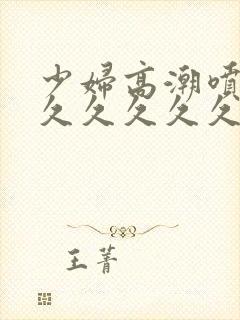 少婦高潮噴
久久久久久
王菁